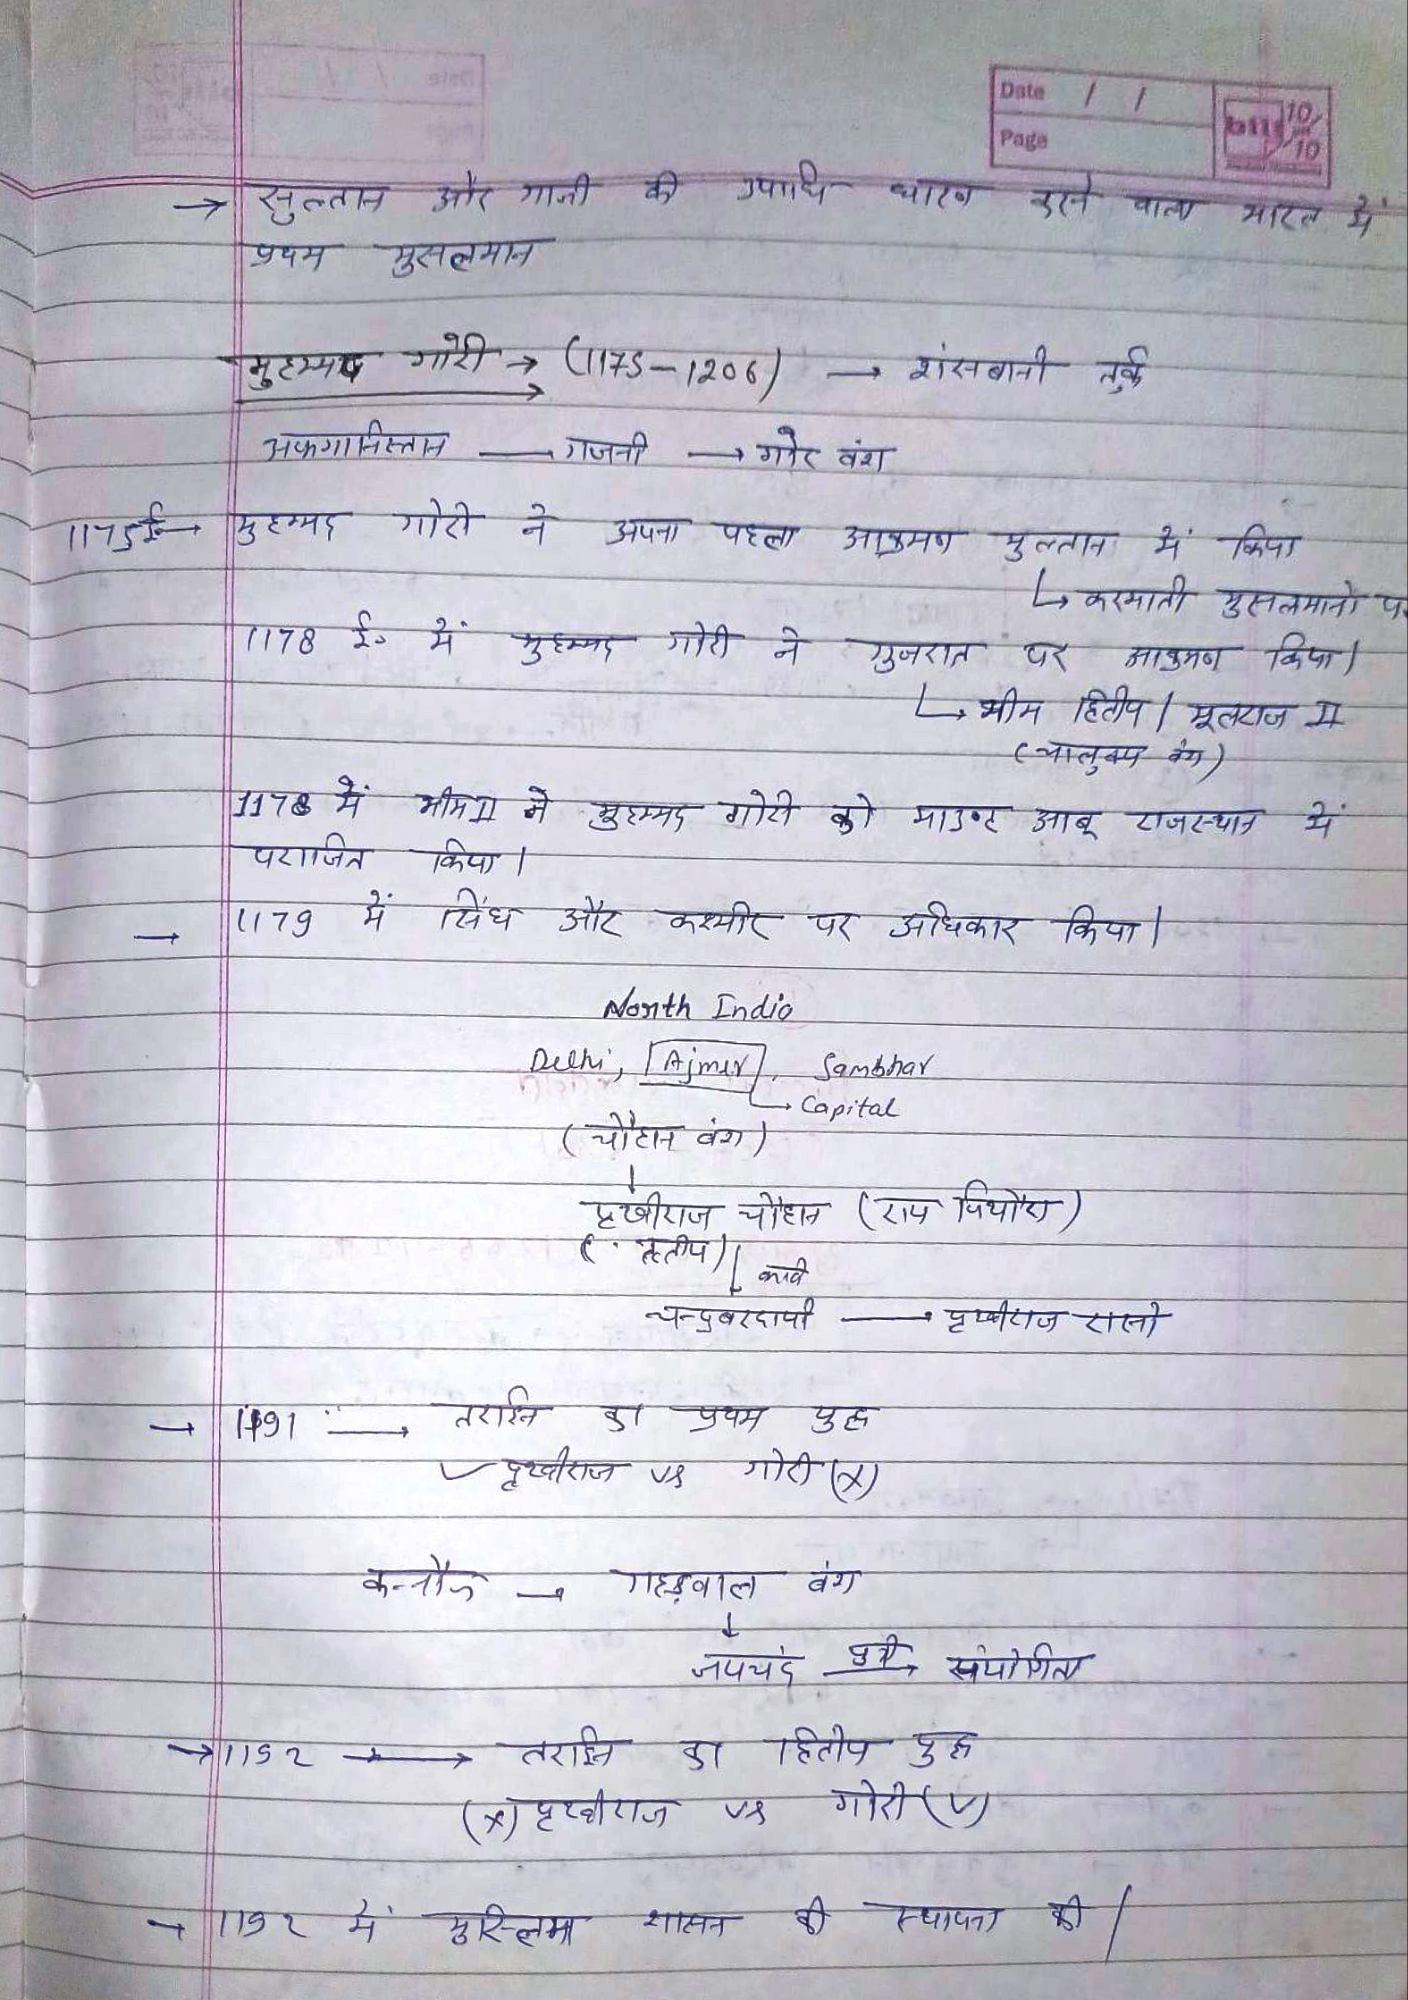 Date / /
Page
→ सुल्तान और गाजी की उपाधि धारण करने वाला भारत में
प्रथम मुसलमान
मुहम्मद गोरी → (1175-1206) → शंसबानी तुर्क
अफगानिस्तान — गजनी → गोर वंश
1175 ई→ मुहम्मद गोरी ने अपना पहला आक्रमण मुल्तान में किया
↳ करमाती मुसलमानो पर
1178 ई० में मुहम्मद गोरी ने गुजरात पर आक्रमण किया।
↳ भीम द्वितीय / मूलराज II
(चालुक्य वंश)
1178 में भीम II ने मुहम्मद गोरी को माउण्ट आबू राजस्थान में
पराजित किया।
→ 1179 में सिंध और कश्मीर पर अधिकार किया।
North India
Delhi, Ajmer, Sambhar
↳ Capital
(चौहान वंश)
↓
पृथ्वीराज चौहान (राय पिथौरा)
(तृतीय) ↓ कवि
चन्द्रबरदायी → पृथ्वीराज रासो
→ 1191 → तराईन का प्रथम युद्ध
✓ पृथ्वीराज vs गोरी (x)
कन्नौज → गहड़वाल वंश
↓
जयचंद पुत्री → संयोगिता
→ 1192 → तराईन का द्वितीय युद्ध
(x) पृथ्वीराज vs गोरी (✓)
→ 1192 में मुस्लिम शासन की स्थापना की।